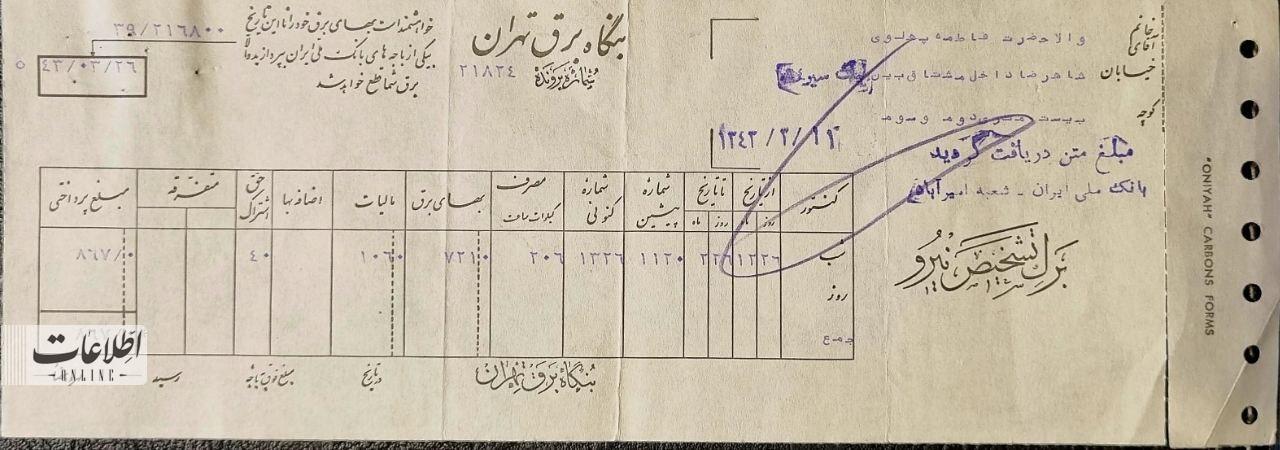 خانم
آقای
والاحضرت فاطمه پهلوی
خیابان
شاهرضا داخل مشتاق بین
کوچه
بیست متری دوم و سوم
۱۳۴۳/۳/۱۱
مبلغ متن دریافت گردید
بانک ملی ایران - شعبه امیرآباد
برگ تشخیص نیرو
بنگاه برق تهران
شماره پرونده
۲۱۸۲۴
خواهشمند است بهای برق خود را تا این تاریخ
بیکی از باجه های بانک ملی ایران بپردازید والا
برق شما قطع خواهد شد
۳۹/۲۱۶۸۰۰
۴۳/۰۳/۲۶
کنتور از تاریخ تا تاریخ شماره پیشین شماره کنونی مصرف کیلووات ساعت بهای برق مالیات اضافه بها حق اشتراک متفرقه مبلغ پرداختی
روز ماه روز ماه
شب ۱۱۲۰ ۱۳۲۶ ۲۰۶ ۷۲۱۰ ۱۰۶۰ ۴۰ ۸۶۷/۰
روز
جمع
بنگاه برق تهران
در تاریخ مبلغ فوق باجه رسید
"ONIYAH" CARBONS FORMS
اطلاعات
ONLINE